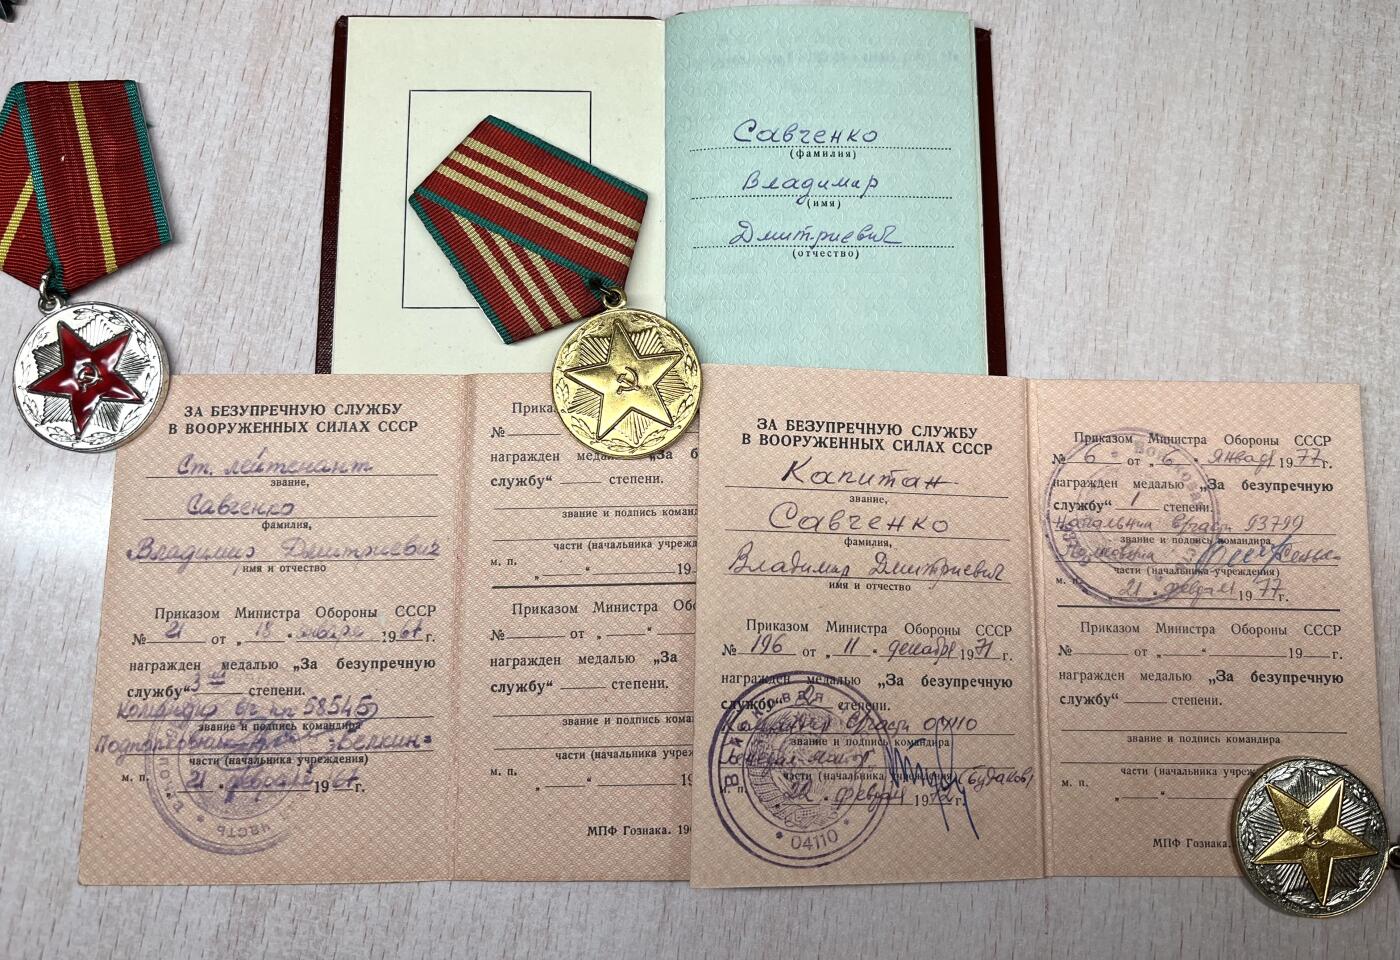 Савченко
(фамилия)
Владимир
(имя)
Дмитриевич
(отчество)
ЗА БЕЗУПРЕЧНУЮ СЛУЖБУ
В ВООРУЖЕННЫХ СИЛАХ СССР
Ст. лейтенант
звание,
Савченко
фамилия,
Владимир Дмитриевич
имя и отчество
Приказом Министра Обороны СССР
№ 21 от „18“ января 1967 г.
награжден медалью „За безупречную
службу“ 3ей степени.
командир вч пп 58545
звание и подпись командира
Подполковник Белкин
части (начальника учреждения)
м. п. „21“ февраля 1967 г.
Прика
№
награжден меда „За б
службу“ степени.
звание и подпись команд
части (начальника учрежд
м. п. „ “ 19
Приказом Министра Об
№ от „ “
награжден медалью „За
службу“ степени.
звание и подпись команд
части (начальника учреж
м. п. “ 19
МПФ Гознака. 19
ЗА БЕЗУПРЕЧНУЮ СЛУЖБУ
В ВООРУЖЕННЫХ СИЛАХ СССР
Капитан
звание,
Савченко
фамилия,
Владимир Дмитриевич
имя и отчество
Приказом Министра Обороны СССР
№ 196 от „11“ декабря 1971 г.
награжден медалью „За безупречную
службу“ 2 степени.
Командир в/части 04110
звание и подпись командира
Генерал-майор (Будаков)
части (начальника учреждения)
м. п. „22“ февраля 1972 г.
04110
Приказом Министра Обороны СССР
№ 6 от „6“ января 1977 г.
награжден медалью „За безупречную
службу“ 1 степени.
Начальник в/части 93799
звание и подпись командира
Полковник
части (начальника учреждения)
м. п. „21“ февраля 1977 г.
Приказом Министра Обороны СССР
№ от „ “ 19 г.
награжден медалью „За безупречную
службу“ степени.
звание и подпись командира
части (начальника учре
м. п. „ “ 19
МПФ Гознака.